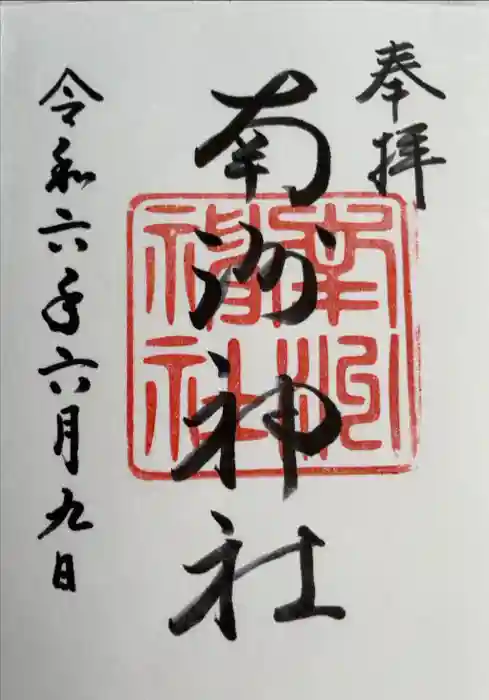 奉拝
南洲神社
南洲
神社
令和六年六月九日